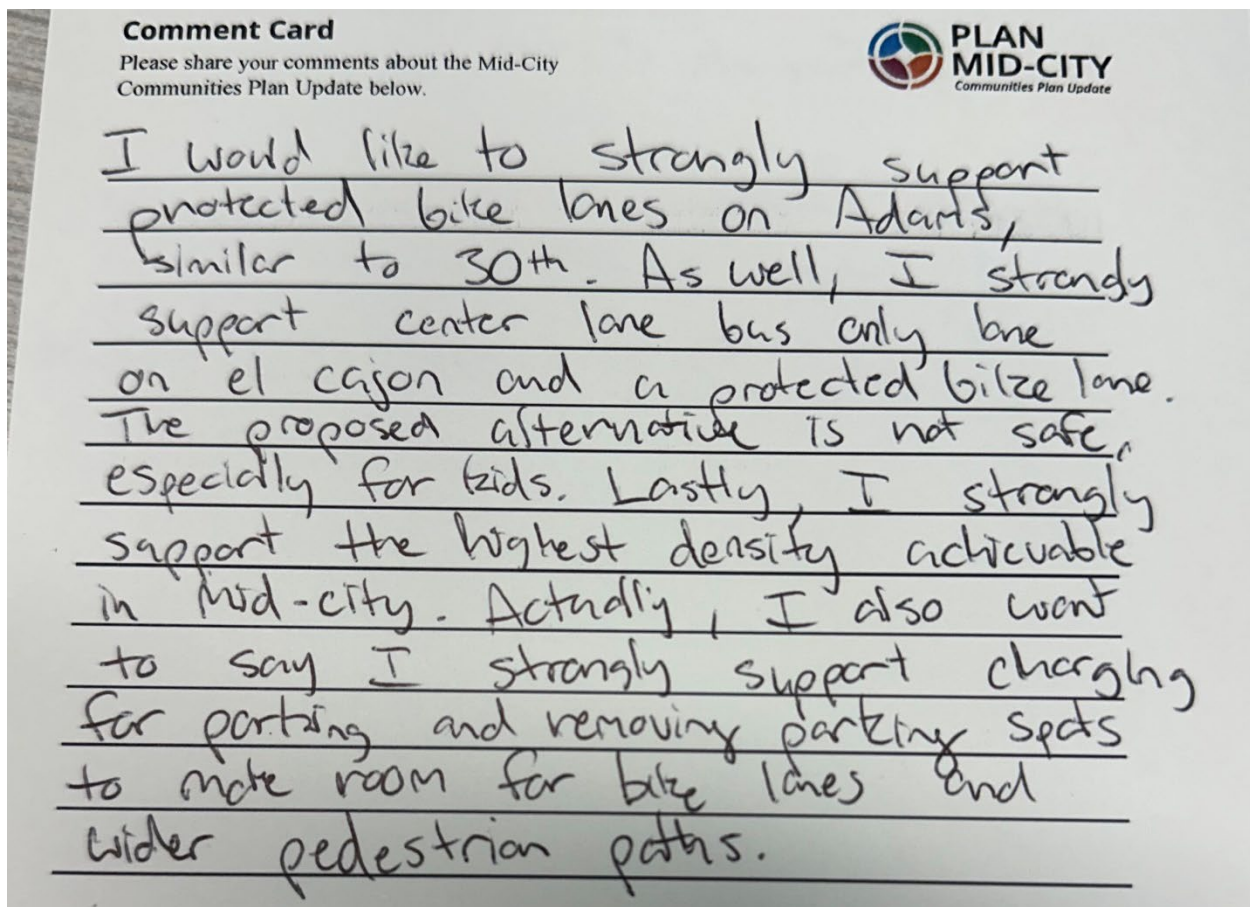 Comment Card
Please share your comments about the Mid-City
Communities Plan Update below.
PLAN
MID-CITY
Communities Plan Update
I would like to strongly support
protected bike lanes on Adams,
similar to 30th. As well, I strongly
support center lane bus only lane
on el cajon and a protected bike lane.
The proposed alternative is not safe,
especially for kids. Lastly, I strongly
support the highest density achievable
in Mid-city. Actually, I also want
to say I strongly support charging
for parking and removing parking spots
to make room for bike lanes and
wider pedestrian paths.